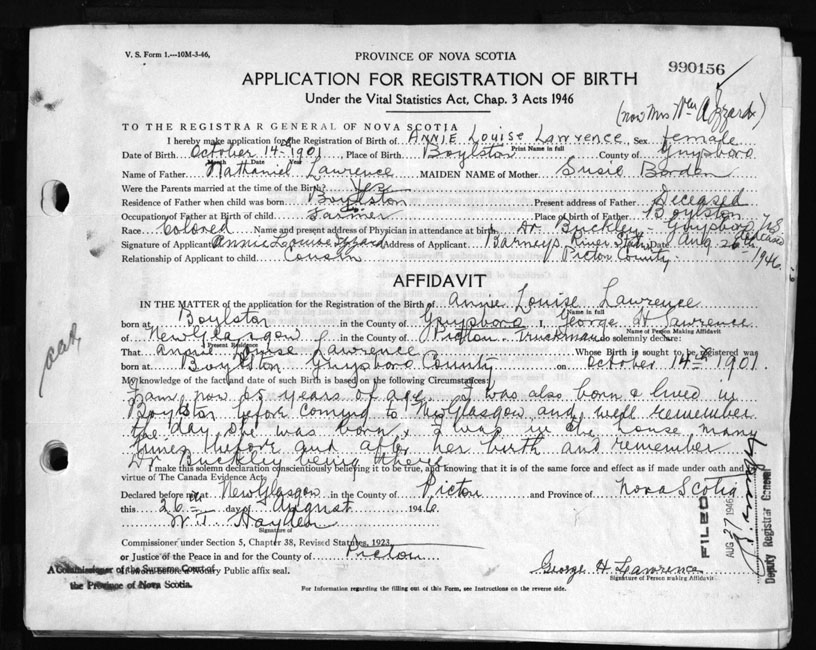 V. S. Form 1.—10M-3-46.
PROVINCE OF NOVA SCOTIA
990156
APPLICATION FOR REGISTRATION OF BIRTH
Under the Vital Statistics Act, Chap. 3 Acts 1946
(now Mrs Wm A Izzard)
TO THE REGISTRAR GENERAL OF NOVA SCOTIA
I hereby make application for the Registration of Birth of ANNIE Louise Lawrence Sex female
Print Name in full
Date of Birth October 14th 1901 Place of Birth Boylston County of Guysboro
Month Date Year
Name of Father Nathaniel Lawrence MAIDEN NAME of Mother Susie Borden
Were the Parents married at the time of the Birth? Yes
Residence of Father when child was born Boylston Present address of Father Deceased
Occupation of Father at Birth of child Farmer Place of birth of Father Boylston
Race Colored Name and present address of Physician in attendance at birth Dr. Buckley - Guysboro N.S. deceased
Signature of Applicant Annie Louise Izzard Address of Applicant Barneys River Stat. Date Aug. 26th 1946
Relationship of Applicant to child Cousin Pictou County
AFFIDAVIT
IN THE MATTER of the application for the Registration of the Birth of Annie Louise Lawrence
Name in full
born at Boylston in the County of Guysboro I, George H Lawrence
Name of Person Making Affidavit
of New Glasgow in the County of Pictou Truckman do solemnly declare:
Present Residence
That Annie Louise Lawrence Whose Birth is sought to be registered was
born at Boylston Guysboro County on October 14th 1901.
My knowledge of the fact and date of such Birth is based on the following Circumstances:
I am now 65 years of age. I was also born & lived in
Boylston before coming to New Glasgow and well remember
the day she was born, I was in the house many
times before and after her birth and remember
Dr Buckley being there
I make this solemn declaration conscientiously believing it to be true, and knowing that it is of the same force and effect as if made under oath and by
virtue of The Canada Evidence Act.
Declared before me at New Glasgow in the County of Pictou and Province of Nova Scotia
this 26th day of August 1946.
W. T. Hayden
Signature of
Commissioner under Section 5, Chapter 38, Revised Statutes, 1923,
or Justice of the Peace in and for the County of Pictou
A Commissioner of the Supreme Court of
the Province of Nova Scotia.
Notary Public affix seal.
George H Lawrence
Signature of Person making Affidavit
For Information regarding the filling out of this Form, see Instructions on the reverse side.
FILED
AUG 27 1946
Deputy Registrar General